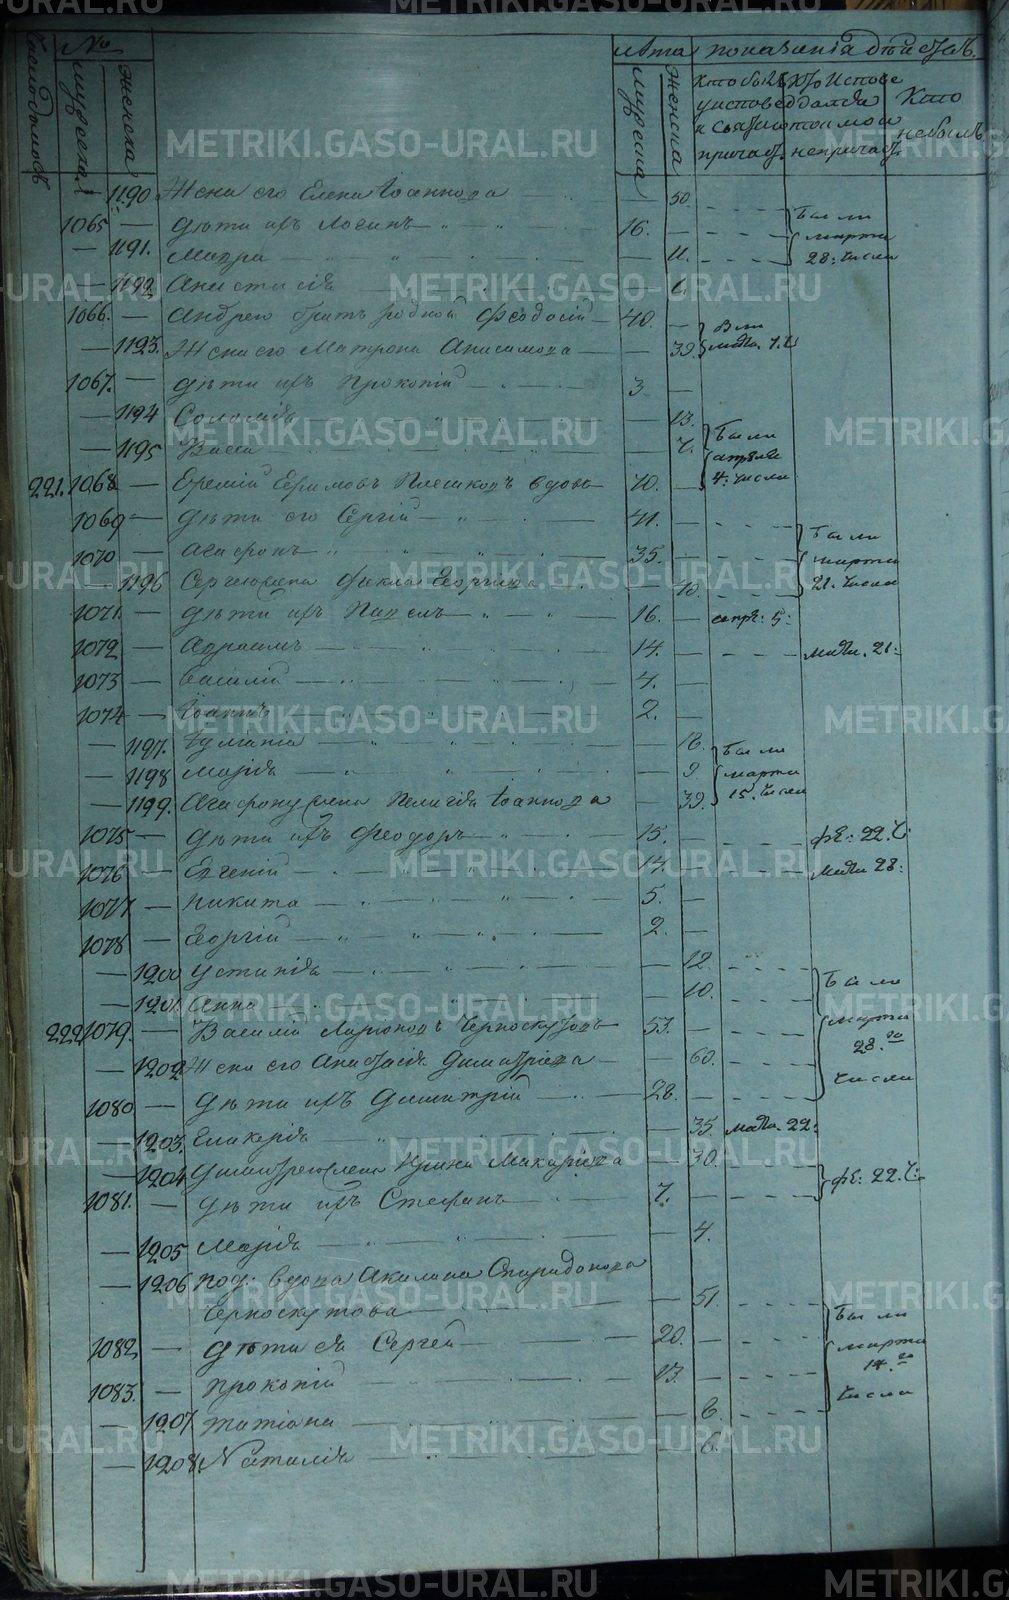 Число домовъ
№
мужеска
женска
лѣта
мужска
женска
показанія дѣйствъ.
Кто былъ у исповеди и святыхъ таинъ причаст.
Кто исповедался но не причаст.
Кто не былъ
1190 Жена его Елена Іоаннова 50.
1065 — дѣти ихъ Логинъ 16.
— 1191. Мавра 11.
Были марта 28: числа
— 1192 Анастасія
1066. — Андрею братъ родной Феодосій 40.
— 1193. Жена его Матрона Анисимова 39.
1067. — дѣти ихъ Прокопій 3
— 1194 Соломія 13.
— 1195 Васса 7.
Были апреля 4: числа
221. 1068 — Еремій Ефимовъ Плешковъ вдовъ 70.
1069 — дѣти его Сергій 41.
1070 — Агафонъ 35.
Были марта 21. числа
— 1196 Сергею жена Фекла Георгиева 40.
1071. — дѣти ихъ Павелъ 16. апрѣ: 5:
1072 — Авраамъ 14. мар. 21:
1073 — Василій 4.
1074 — Іоаннъ 2.
— 1197. Іуліанія 18.
— 1198 Марія 9
Были марта 15. числа
— 1199. Агафону жена Пелагія Іоаннова 39.
1075 — дѣти ихъ Феодоръ 15. фе: 22. ч:
1076 — Евгеній 14. мар. 28:
1077 — Никита 5.
1078 — Георгій 2.
— 1200 Устинія 12
— 1201. Анна 10.
Были марта 28.го числа
222 1079. — Василій Ларіоновъ Черноскутовъ 57.
— 1202 Жена его Анастасія Димитріева 60.
1080 — дѣти ихъ Димитрій 28.
— 1203. Гликерія 35. мар. 22:
— 1204 Димитрею жена Ирина Макаріева 30.
фе: 22. ч:
1081. — дѣти ихъ Стефанъ 7.
— 1205 Марія 4.
— 1206 под: вдова Акилина Спиридонова
Черноскутова 51
1082 — дѣти ея Сергей 20.
1083. — Прокопій 13.
Были марта 14.го числа
— 1207. Татіана 8.
— 1208. Наталія 6.
METRIKI.GASO-URAL.RU